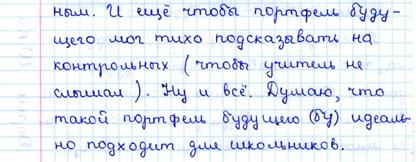 ным. И ещё чтобы портфель буду-
щего мог тихо подсказывать на
контрольных (чтобы учитель не
слышал). Ну и всё. Думаю, что
такой портфель будущего (БУ) идеаль-
но подходит для школьников.